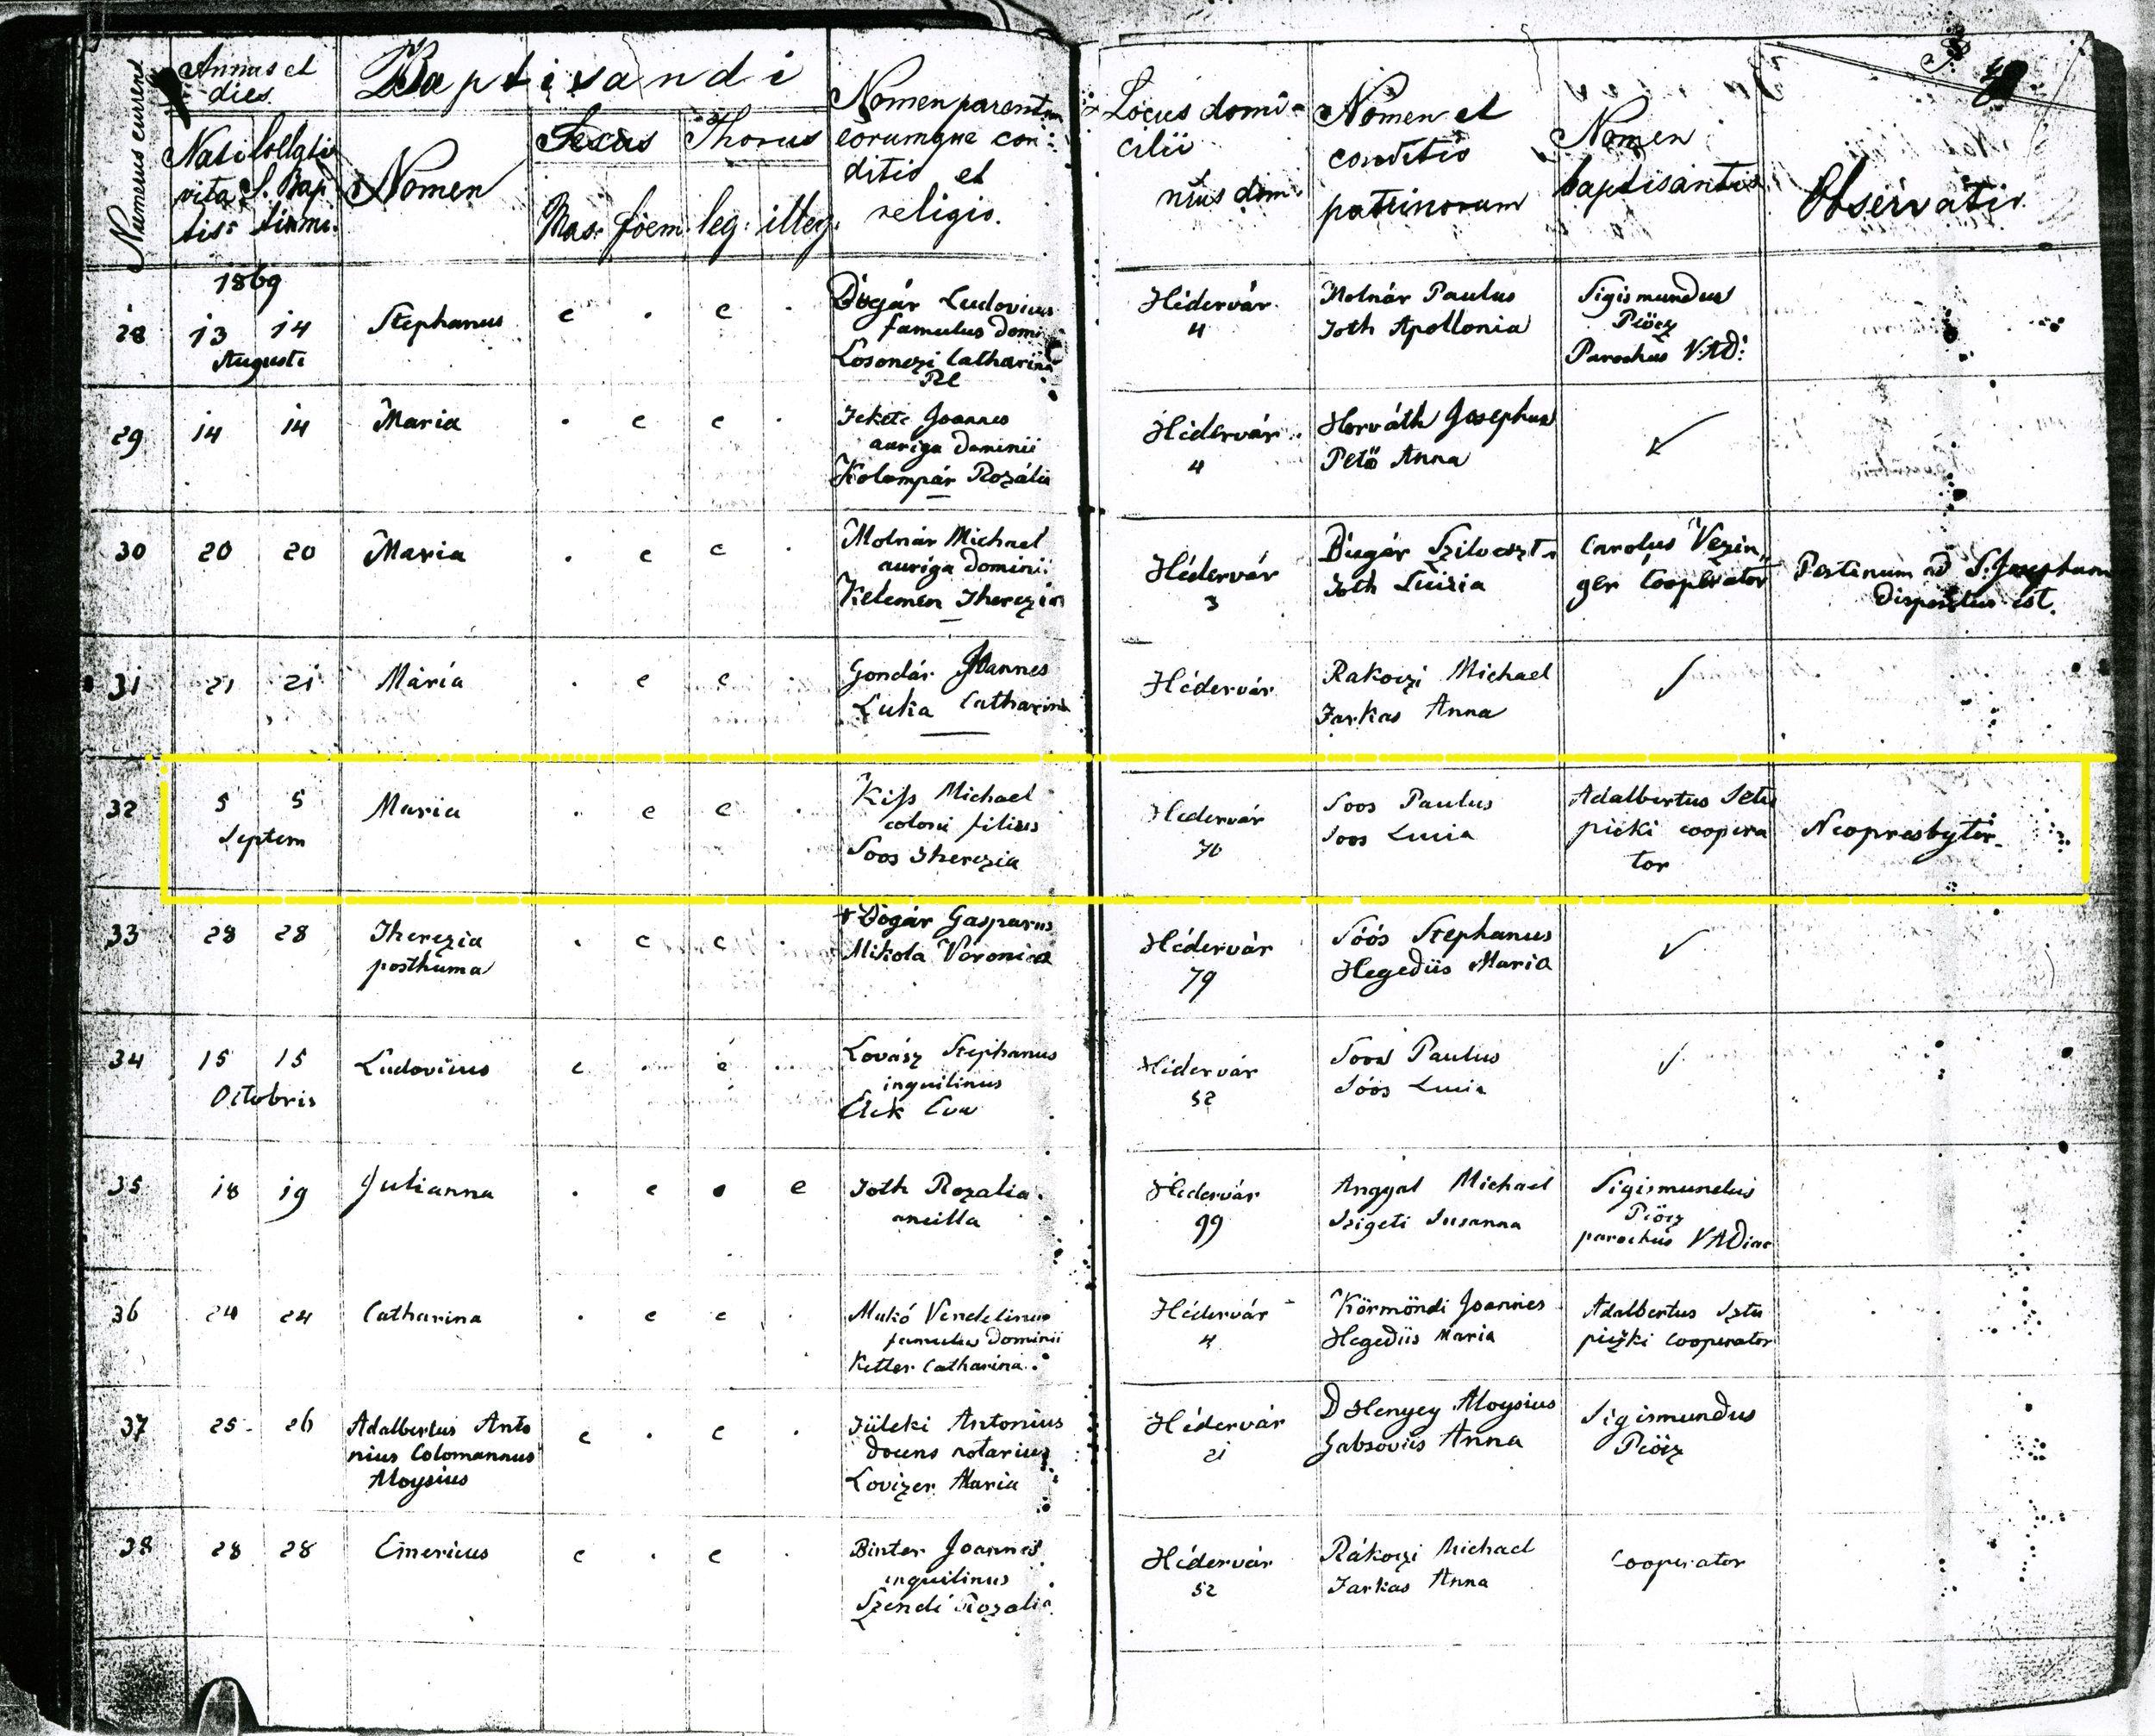 Numerus current
Annus et
dies
Nati
vita
tis
Collati
S. Bap
tismi.
Baptisandi
Nomen
Sexus
Mas. foem.
Thorus
leg. illeg.
Nomen parentum
eorumque con:
ditio et
religio.
Locus domi-
cilii
nrus dom.
Nomen et
conditio
patrinorum
Nomen
baptisantis
Observatio
1869
28 13 14
Augusti
Stephanus
Bogár Ludovicus
famulus domi
Losonczi Catharina
Hédervár
4
Molnár Paulus
Toth Apollonia
Sigismundus
Piócz
Parochus V.AD:
29 14 14 Maria
Fekete Joannes
auriga Dominii
Kolompár Rozália
Hédervár
4
Horváth Josephus
Pető Anna
30 20 20 Maria
Molnár Michael
auriga Dominii
Kelemen Therezia
Hédervár
3
Bugár Szilveszt
Toth Luizia
Carolus Vezin
ger Cooperator
ad S. Josephum
est.
31 21 21 Mária
Gondár Joannes
Luka Catharina
Hédervár
Rakoczi Michael
Farkas Anna
32 5 5
Septem
Maria
Kiss Michael
coloni filius
Soos Therezia
Hedervár
70
Soos Paulus
Soos Lucia
Adalbertus Sztu
picki coopera
tor
Neopresbyter
33 28 28 Therezia
posthuma
+ Bogár Gasparus
Mikola Veronica
Hédervár
79
Sóós Stephanus
Hegedüs Maria
34 15 15
Octobris
Ludovicus
Lovász Stephanus
inquilinus
Eva
Hédervár
52
Soos Paulus
Sóós Lucia
35 18 19 Julianna
Toth Rozalia
ancilla
Hédervár
99
Angyal Michael
Szigeti Susanna
Sigismundus
Piócz
parochus VADiac
36 24 24 Catharina
Makó Vendelinus
famulus Dominii
Ketter Catharina
Hédervár
4
Körmöndi Joannes
Hegedüs Maria
Adalbertus Sztu
piczki cooperator
37 25 26 Adalbertus Anto
nius Colomannus
Aloysius
Füleki Antonius
docens notarius
Lovizer Maria
Hédervár
21
D Henyey Aloysius
Gabsovits Anna
Sigismundus
Piócz
38 28 28 Emericus
Binter Joannes
inquilinus
Szendi Rozalia
Hédervár
52
Rákoczi Michael
Farkas Anna
Cooperator